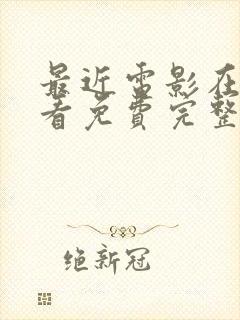 最近雷影在
看免费完整
绝新冠